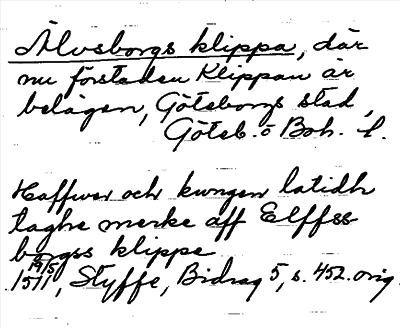 Älvsborgs klippa, där
nu förstaden Klippan är
belägen, Göteborgs stad,
Göteb. o Boh. l.
Haffwer och kwngen latidh
taghe merke aff Elffss-
borgss klippe
19/5
1511, Styffe, Bidrag 5, s. 452. orig.